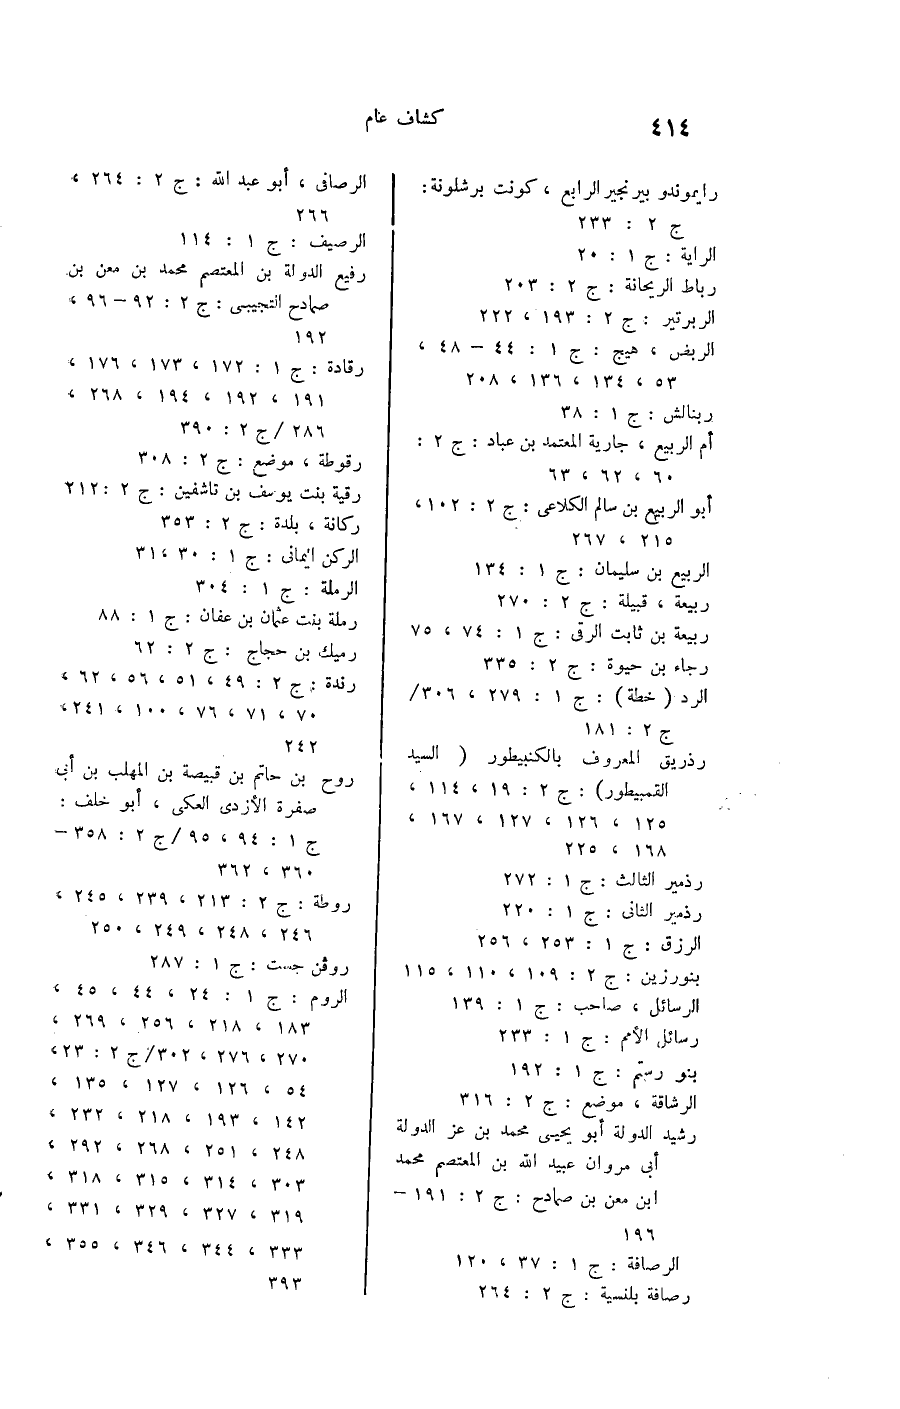 ٤١٤
كشاف عام
رايموندو بيرنجير الرابع ، كونت برشلونة :
ج ٢ : ٢٣٣
الراية : ج ١ : ٢٠
رباط الريحانة : ج ٢ : ٢٠٣
الربرتير : ج ٢ : ١٩٣ ، ٢٢٢
الربض ، هيج : ج ١ : ٤٤ – ٤٨ ،
٥٣ ، ١٣٤ ، ١٣٦ ، ٢٠٨
ربنالش : ج ١ : ٣٨
أم الربيع ، جارية المعتمد بن عباد : ج ٢ :
٦٠ ، ٦٢ ، ٦٣
أبو الربيع بن سالم الكلاعى : ج ٢ : ١٠٢ ،
٢١٥ ، ٢٦٧
الربيع بن سليمان : ج ١ : ١٣٤
ربيعة ، قبيلة : ج ٢ : ٢٧٠
ربيعة بن ثابت الرقى : ج ١ : ٧٤ ، ٧٥
رجاء بن حيوة : ج ٢ : ٣٣٥
الرد ( خطة ) : ج ١ : ٢٧٩ ، ٣٠٦/
ج ٢ : ١٨١
رذريق المعروف بالكنبيطور ( السيد
القمبيطور) : ج ٢ : ١٩ ، ١١٤ ،
١٢٥ ، ١٢٦ ، ١٢٧ ، ١٦٧ ،
١٦٨ ، ٢٢٥
رذمير الثالث : ج ١ : ٢٧٢
رذمير الثانى : ج ١ : ٢٢٠
الرزق : ج ١ : ٢٥٣ ، ٢٥٦
بنورزين : ج ٢ : ١٠٩ ، ١١٠ ، ١١٥
الرسائل ، صاحب : ج ١ : ١٣٩
رسائل الأمم : ج ١ : ٢٣٣
بنو رستم : ج ١ : ١٩٢
الرشاقة ، موضع : ج ٢ : ٣١٦
رشيد الدولة أبو يحيى محمد بن عز الدولة
أبى مروان عبيد الله بن المعتصم محمد
ابن معن بن صمادح : ج ٢ : ١٩١ –
١٩٦
الرصافة : ج ١ : ٣٧ ، ١٢٠
رصافة بلنسية : ج ٢ : ٢٦٤
الرصافى ، أبو عبد الله : ج ٢ : ٢٦٤ ،
٢٦٦
الرصيف : ج ١ : ١١٤
رفيع الدولة بن المعتصم محمد بن معن بن
صمادح التجيبى : ج ٢ : ٩٢ – ٩٦ ،
١٩٢
رقادة : ج ١ : ١٧٢ ، ١٧٣ ، ١٧٦ ،
١٩١ ، ١٩٢ ، ١٩٤ ، ٢٦٨ ،
٢٨٦ /ج ٢ : ٣٩٠
رقوطة ، موضع : ج ٢ : ٣٠٨
رقية بنت يوسف بن تاشفين : ج ٢ : ٢١٢
ركانة ، بلدة : ج ٢ : ٣٥٣
الركن اليمانى : ج ١ : ٣٠ ، ٣١
الرملة : ج ١ : ٣٠٤
رملة بنت عثمان بن عفان : ج ١ : ٨٨
رميك بن حجاج : ج ٢ : ٦٢
رندة : ج ٢ : ٤٩ ، ٥١ ، ٥٦ ، ٦٢ ،
٧٠ ، ٧١ ، ٧٦ ، ١٠٠ ، ٢٤١ ،
٢٤٢
روح بن حاتم بن قبيصة بن المهلب بن أبى
صفرة الأزدى العكى ، أبو خلف :
ج ١ : ٩٤ ، ٩٥ /ج ٢ : ٣٥٨ –
٣٦٠ ، ٣٦٢
روطة : ج ٢ : ٢١٣ ، ٢٣٩ ، ٢٤٥ ،
٢٤٦ ، ٢٤٨ ، ٢٤٩ ، ٢٥٠
روڤن جست : ج ١ : ٢٨٧
الروم : ج ١ : ٢٤ ، ٤٤ ، ٤٥ ،
١٨٣ ، ٢١٨ ، ٢٥٦ ، ٢٦٩ ،
٢٧٠ ، ٢٧٦ ، ٣٠٢/ج ٢ : ٢٣ ،
٥٤ ، ١٢٦ ، ١٢٧ ، ١٣٥ ،
١٤٢ ، ١٩٣ ، ٢١٨ ، ٢٣٢ ،
٢٤٨ ، ٢٥١ ، ٢٦٨ ، ٢٩٢ ،
٣٠٣ ، ٣١٤ ، ٣١٥ ، ٣١٨ ،
٣١٩ ، ٣٢٧ ، ٣٢٩ ، ٣٣١ ،
٣٣٣ ، ٣٤٤ ، ٣٤٦ ، ٣٥٥ ،
٣٩٣